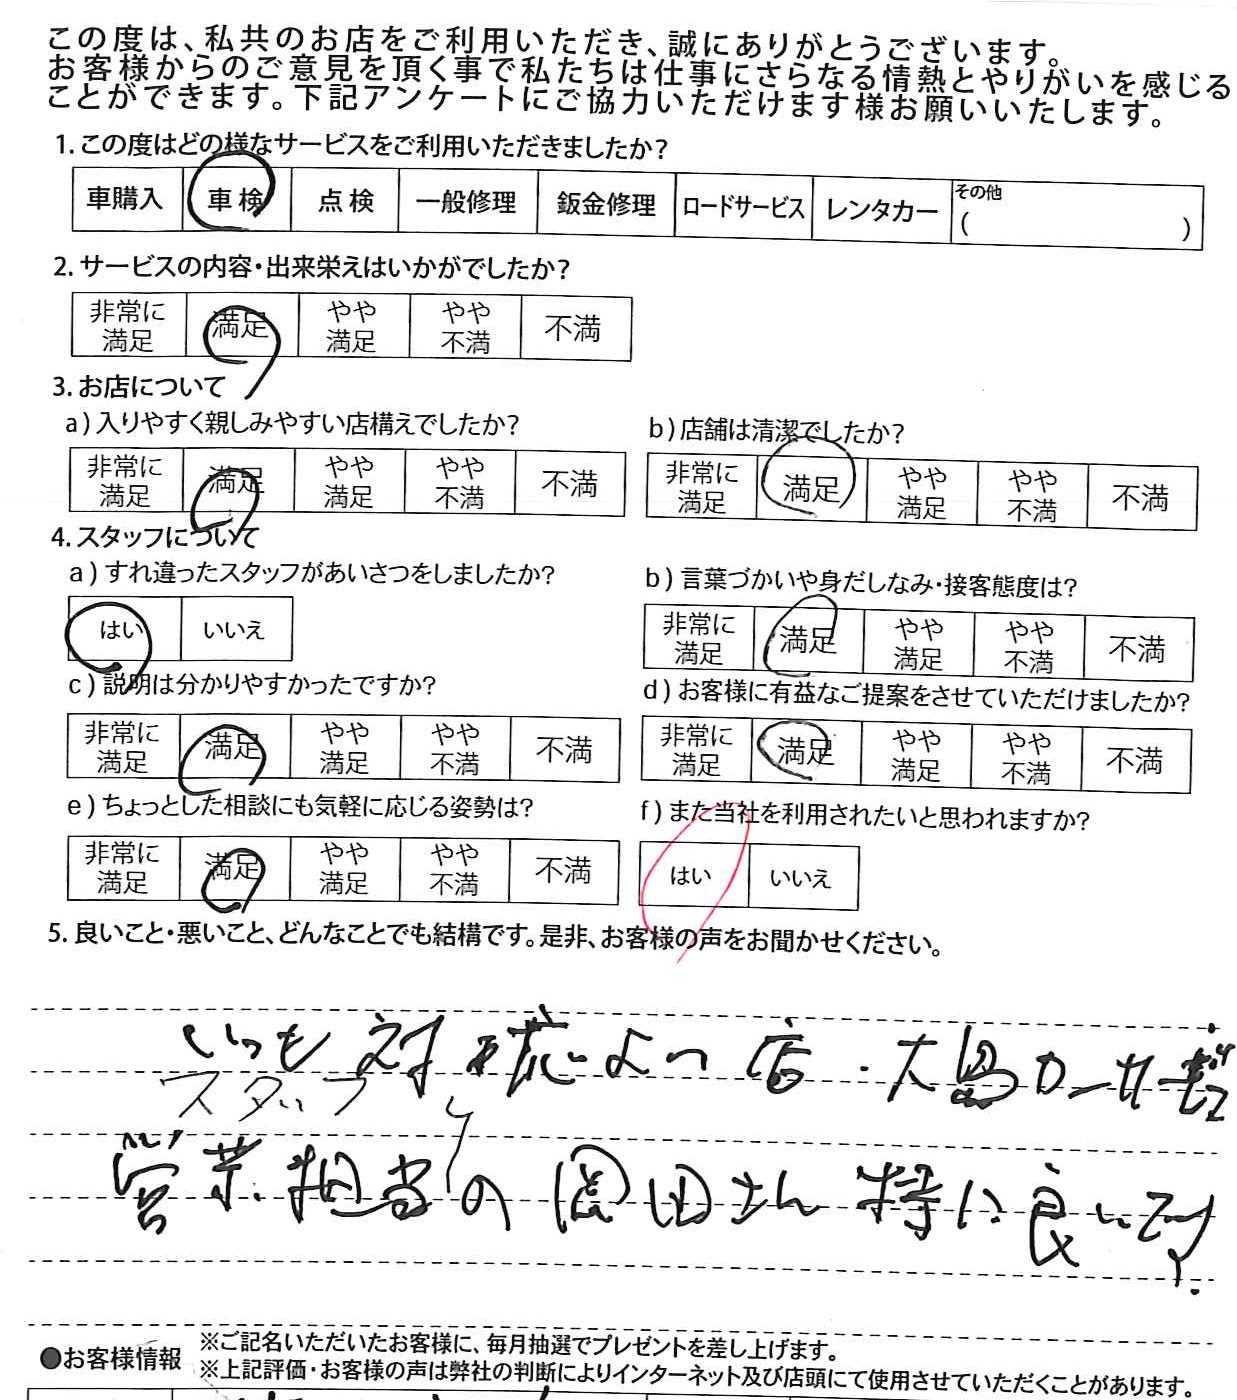 この度は、私共のお店をご利用いただき、誠にありがとうございます。
お客様からのご意見を頂く事で私たちは仕事にさらなる情熱とやりがいを感じる
ことができます。下記アンケートにご協力いただけます様お願いいたします。
1. この度はどの様なサービスをご利用いただきましたか?
車購入 車検 点検 一般修理 鈑金修理 ロードサービス レンタカー その他 ( )
2. サービスの内容・出来栄えはいかがでしたか?
非常に満足 満足 やや満足 やや不満 不満
3. お店について
a) 入りやすく親しみやすい店構えでしたか?
非常に満足 満足 やや満足 やや不満 不満
b) 店舗は清潔でしたか?
非常に満足 満足 やや満足 やや不満 不満
4. スタッフについて
a) すれ違ったスタッフがあいさつをしましたか?
はい いいえ
b) 言葉づかいや身だしなみ・接客態度は?
非常に満足 満足 やや満足 やや不満 不満
c) 説明は分かりやすかったですか?
非常に満足 満足 やや満足 やや不満 不満
d) お客様に有益なご提案をさせていただけましたか?
非常に満足 満足 やや満足 やや不満 不満
e) ちょっとした相談にも気軽に応じる姿勢は?
非常に満足 満足 やや満足 やや不満 不満
f) また当社を利用されたいと思われますか?
はい いいえ
5. 良いこと・悪いこと、どんなことでも結構です。是非、お客様の声をお聞かせください。
いつも対応よつ店・大島カー
スタッフ
営業担当の 田さん特に良いです.
●お客様情報 ※ご記名いただいたお客様に、毎月抽選でプレゼントを差し上げます。
※上記評価・お客様の声は弊社の判断によりインターネット及び店頭にて使用させていただくことがあります。